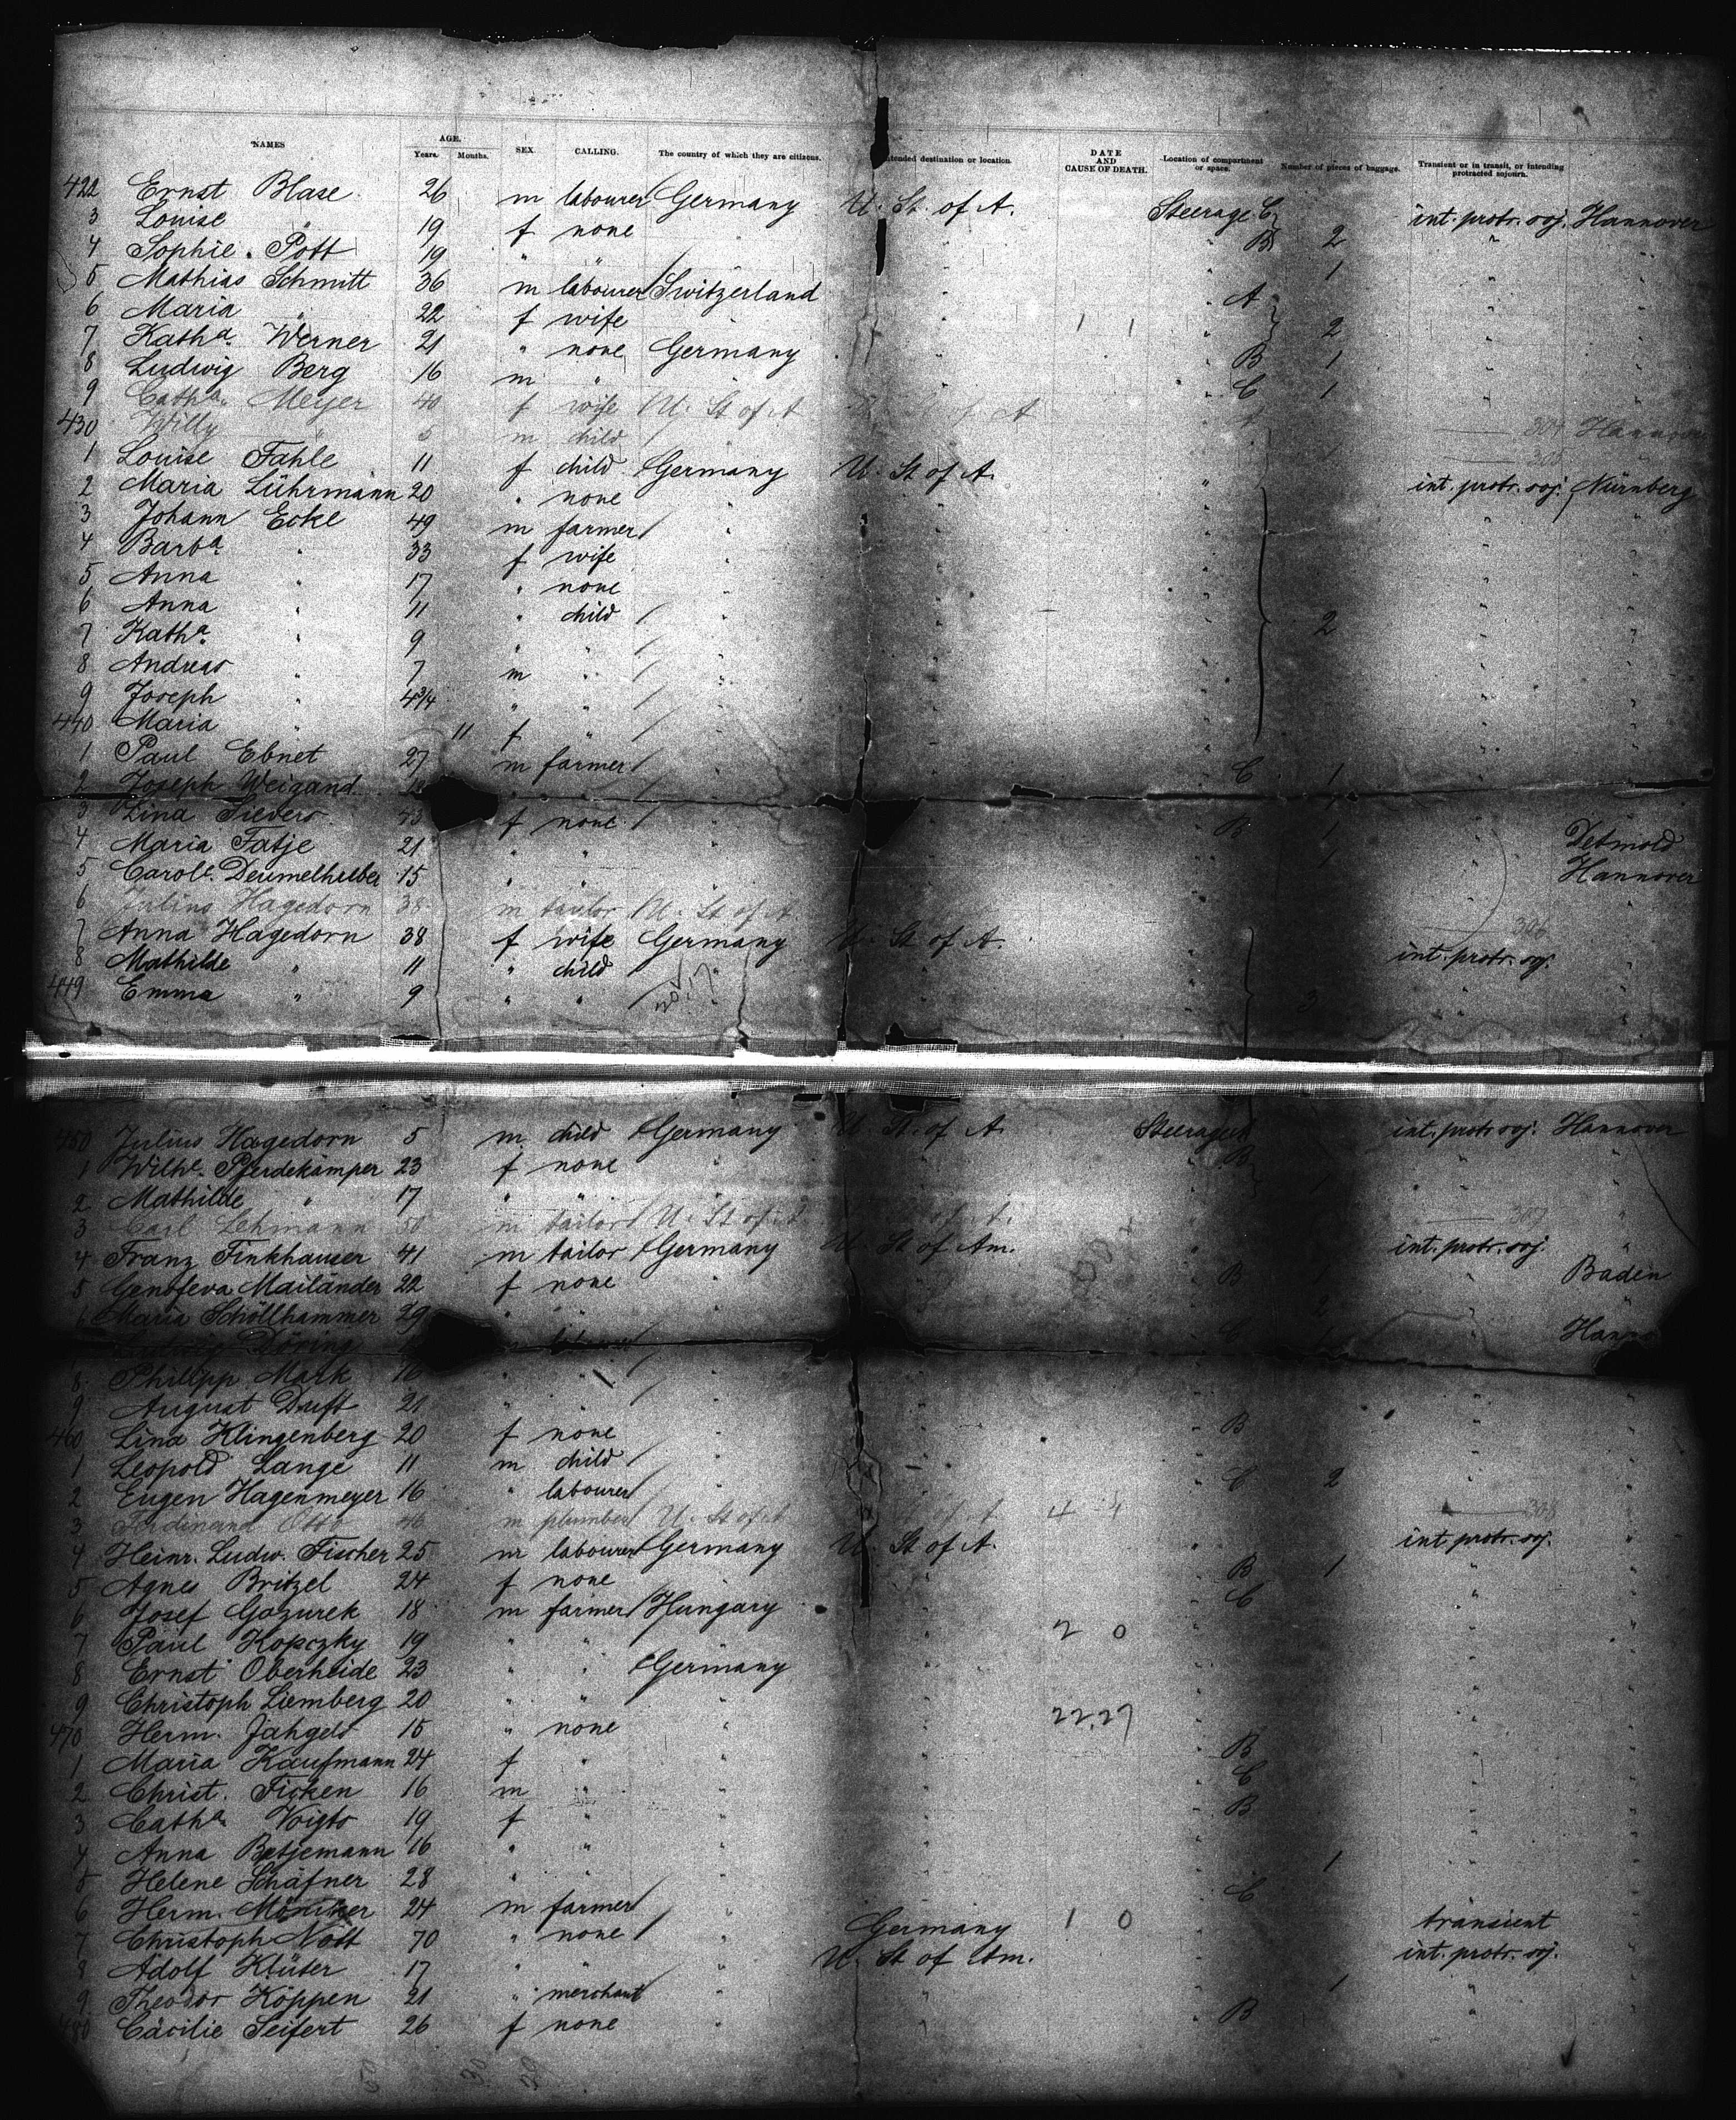 NAMES AGE. Years. Months. SEX. CALLING. The country of which they are citizens. Intended destination or location. DATE AND CAUSE OF DEATH. Location of compartment or space. Number of pieces of baggage. Transient or in transit, or intending protracted sojourn.
422 Ernst Blase 26 m labourer Germany U. St. of A. Steerage C int. protr. soj. Hannover
3 Louise " 19 f none " " B 2 "
4 Sophie Pott 19 " " " " 1 "
5 Mathias Schmitt 36 m labourer Switzerland " A "
6 Maria " 22 f wife " " 1 1 2 "
7 Katha. Werner 21 " none Germany " B 1 "
8 Ludwig Berg 16 m " " " C 1 "
9 Catha. Meyer 40 f wife U. St of A A 304 Hannover
430 Willy " 5 m child 1 305
1 Louise Fahle 11 f child Germany U. St of A. int. protr. soj. Nürnberg
2 Maria Lührmann 20 " none " " "
3 Johann Eckl 49 m farmer " " "
4 Barba. " 33 f wife " " "
5 Anna " 17 " none " " "
6 Anna " 11 " child " " "
7 Katha. " 9 " " " " 2 "
8 Andreas " 7 m " " " "
9 Joseph " 4 3/4 " " " " "
440 Maria " 11 f " " " "
1 Paul Ebnet 27 m farmer " " C 1 "
2 Joseph Weigand " " " " 1 "
3 Lina Sievers f none " " B 1 " Detmold
4 Maria Fatje 21 " " " " 1 " Hannover
5 Carole. 15 " " " " "
6 Julius Hagedorn 38 m tailor U. St of A 306
7 Anna Hagedorn 38 f wife Germany U. St of A. int. protr. soj.
8 Mathilde " 11 " child " " "
449 Emma " 9 " " " " 3 "
450 Julius Hagedorn 5 m child Germany U. St. of A. Steerage int. protr. soj. Hannover
1 Wilhe. Pferdekämper 23 f none " " B "
2 Mathilde " 17 " " " " 1 "
3 Carl Lehmann 50 m tailor U. St of A of A. 307
4 Franz Finkhauser 41 m tailor Germany U. St of Am. int. protr. soj.
5 Genofeva Mailänder 22 f none " " B 1 " Baden
6 Maria Schöllhammer 29 " " " " 2 "
Döring labourer C 1
8 Philipp Mark 16 " " " " "
9 August Duft 21 " " " " "
460 Lina Klingenberg 20 f none " " B "
1 Leopold Lange 11 m child " " C 2 "
2 Eugen Hagenmeyer 16 " labourer " " "
3 Ferdinand Otto 46 m plumber U. St of A St of A 4 4 308
4 Heinr. Ludw. Fischer 25 m labourer Germany U. St of A. int. protr. soj.
5 Agnes Britzel 24 f none " " B 1 "
6 Josef Gazurek 18 m farmer Hungary " C "
7 Paul Kopczky 19 " " " " 2 0 "
8 Ernst Oberheide 23 " " Germany " "
9 Christoph Liemberg 20 " " " " "
470 Herm. Jahgels 15 " none " " 22,27 B "
1 Maria Kaufmann 24 f " " " C "
2 Christ. Ficken 16 m " " " B "
3 Catha. Voigts 19 f " " " "
4 Anna Betjemann 16 " " " " 1 "
5 Helene Schäfner 28 " " " " C "
6 Herm. 24 m farmer " Germany 1 0 transient
7 Christoph Nolt 70 " none " U. St of Am. int. protr. soj.
8 Adolf Klüter 17 " " " " 1 "
9 Theodor Köppen 21 " merchant " " B "
480 Cäcilie Seifert 26 f none " " "